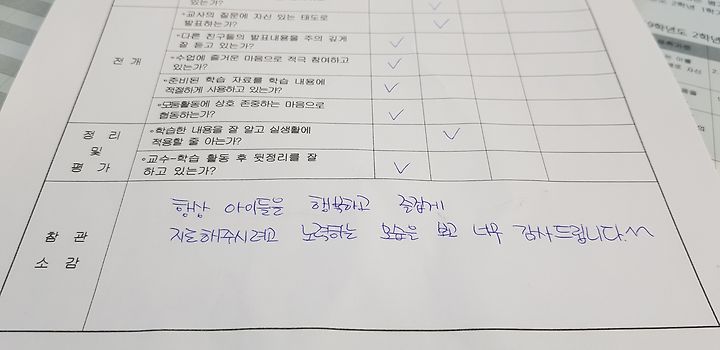 있는가?
◦교사의 질문에 자신 있는 태도로
발표하는가?
◦다른 친구들의 발표내용을 주의 깊게
잘 듣고 있는가?
전 개
◦수업에 즐거운 마음으로 적극 참여하고
있는가?
◦준비된 학습 자료를 학습 내용에
적절하게 사용하고 있는가?
◦모둠활동에 상호 존중하는 마음으로
협동하는가?
정 리
및
평 가
◦학습한 내용을 잘 알고 실생활에
적용할 줄 아는가?
◦교수-학습 활동 후 뒷정리를 잘
하고 있는가?
참 관
소 감
항상 아이들을 행복하고 즐겁게
지도해주시려고 노력하는 모습을 보고 너무 감사드립니다.^^
2학년 1학
9학년도 2학년